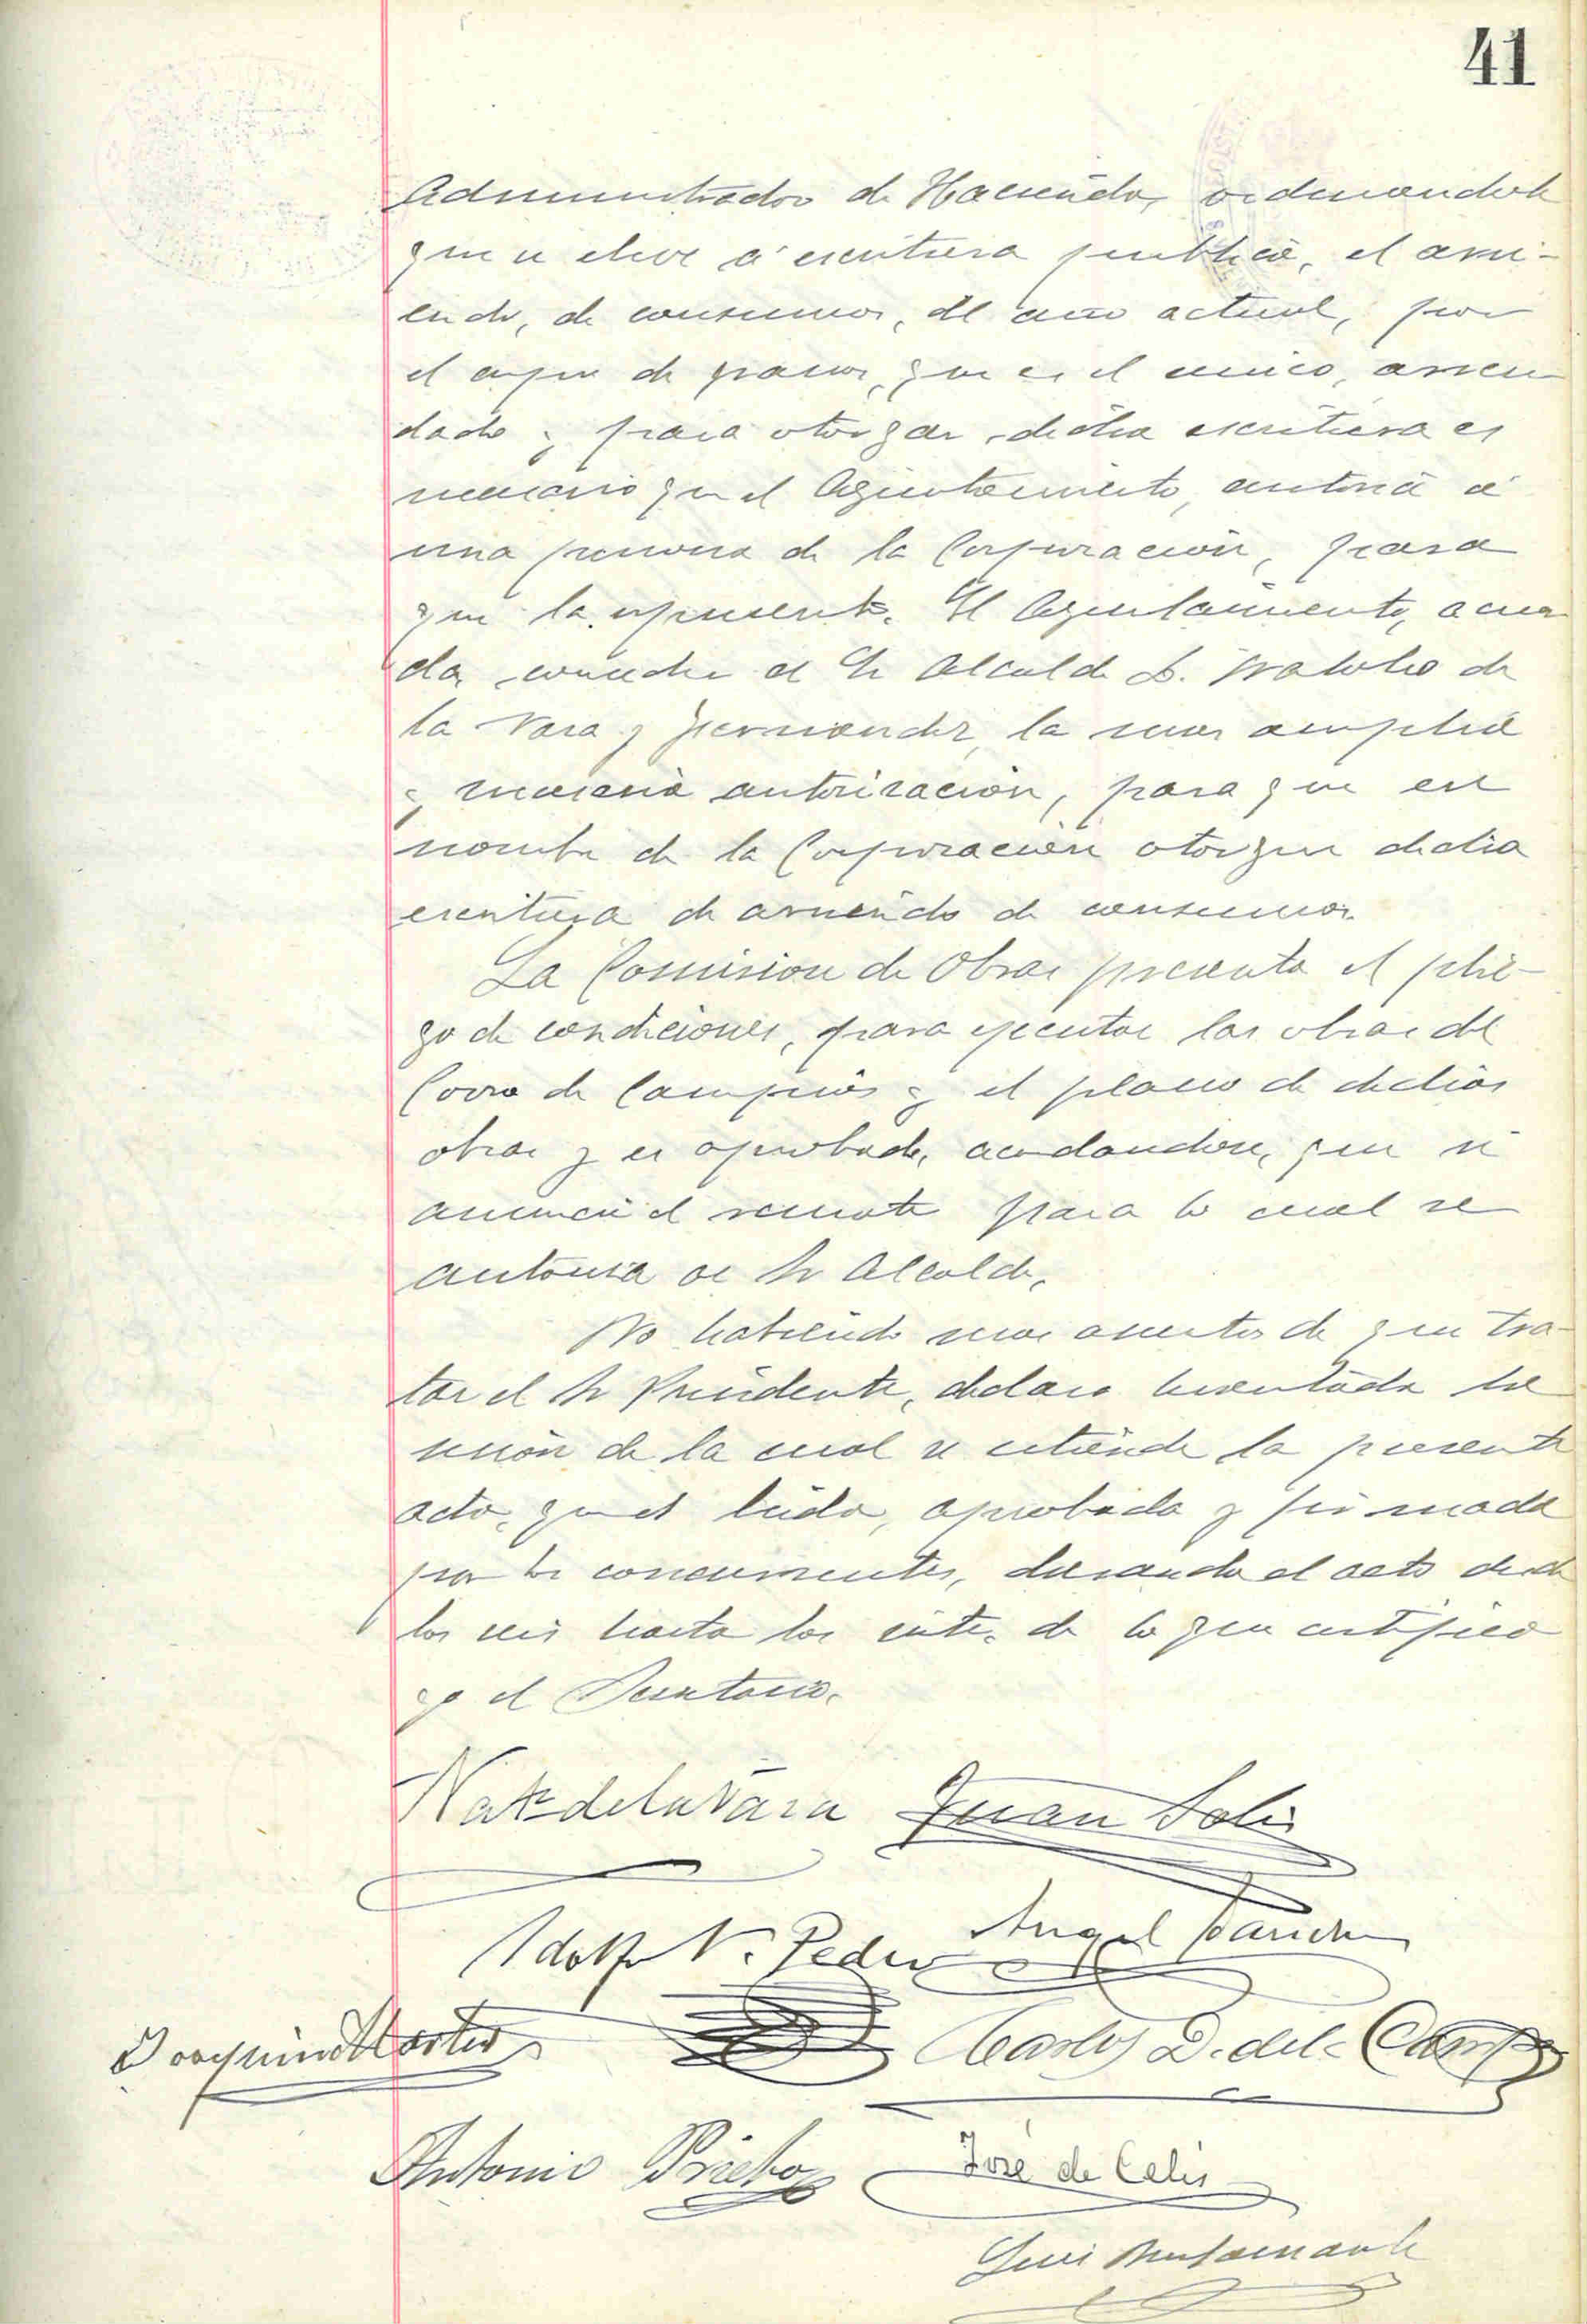 41
Administrador de Hacienda, ordenandole
que se eleve á escritura publica, el arri-
endo, de consumos, del año actual, por
el cupo de granos, que es el unico, arren
dado y para otorgar dicha escritura es
necesario que el Ayuntamiento, autorice á
una persona de la Corporación, para
que la represente. El Ayuntamiento, acuer
da, conceder al Sr Alcalde D. Natalio de
la Vara y Fernandez, la mas amplia
y necesaria autorización, para que en
nombre de la Corporación otorgue dicha
escritura de arriendo de consumos.
La Comision de Obras presenta el plie-
go de condiciones, para ejecutar las obras del
Corro de Campios y el plano de dichas
obras y es aprobado, acordandose, que se
anuncie el remate para lo cual se
autoriza al Sr Alcalde.
No habiendo mas asuntos de que tra-
tar el Sr Presidente, declara levantada la
sesión de la cual se extiende la presente
acta, que es leida, aprobada y firmada
por los concurrentes, durando el acto desde
las seis hasta las siete, de lo que certifico
yo el Secretario.
Nat de la Vara Juan Solis
Angel Sanchez
Adolfo V. Pedro
Joaquin Martin Carlos D. de la Campa
Antonio Prieto José de Celis
Luis Bustamante